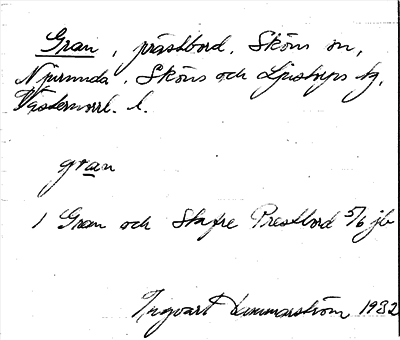 Gran, prästbord, Sköns sn,
Njurunda, Sköns och Ljustorps tg,
Västernorrl. l.
gran
1 Gran och Stafre Prestbord 5/6 jb
Ingvart Hammarström 1932